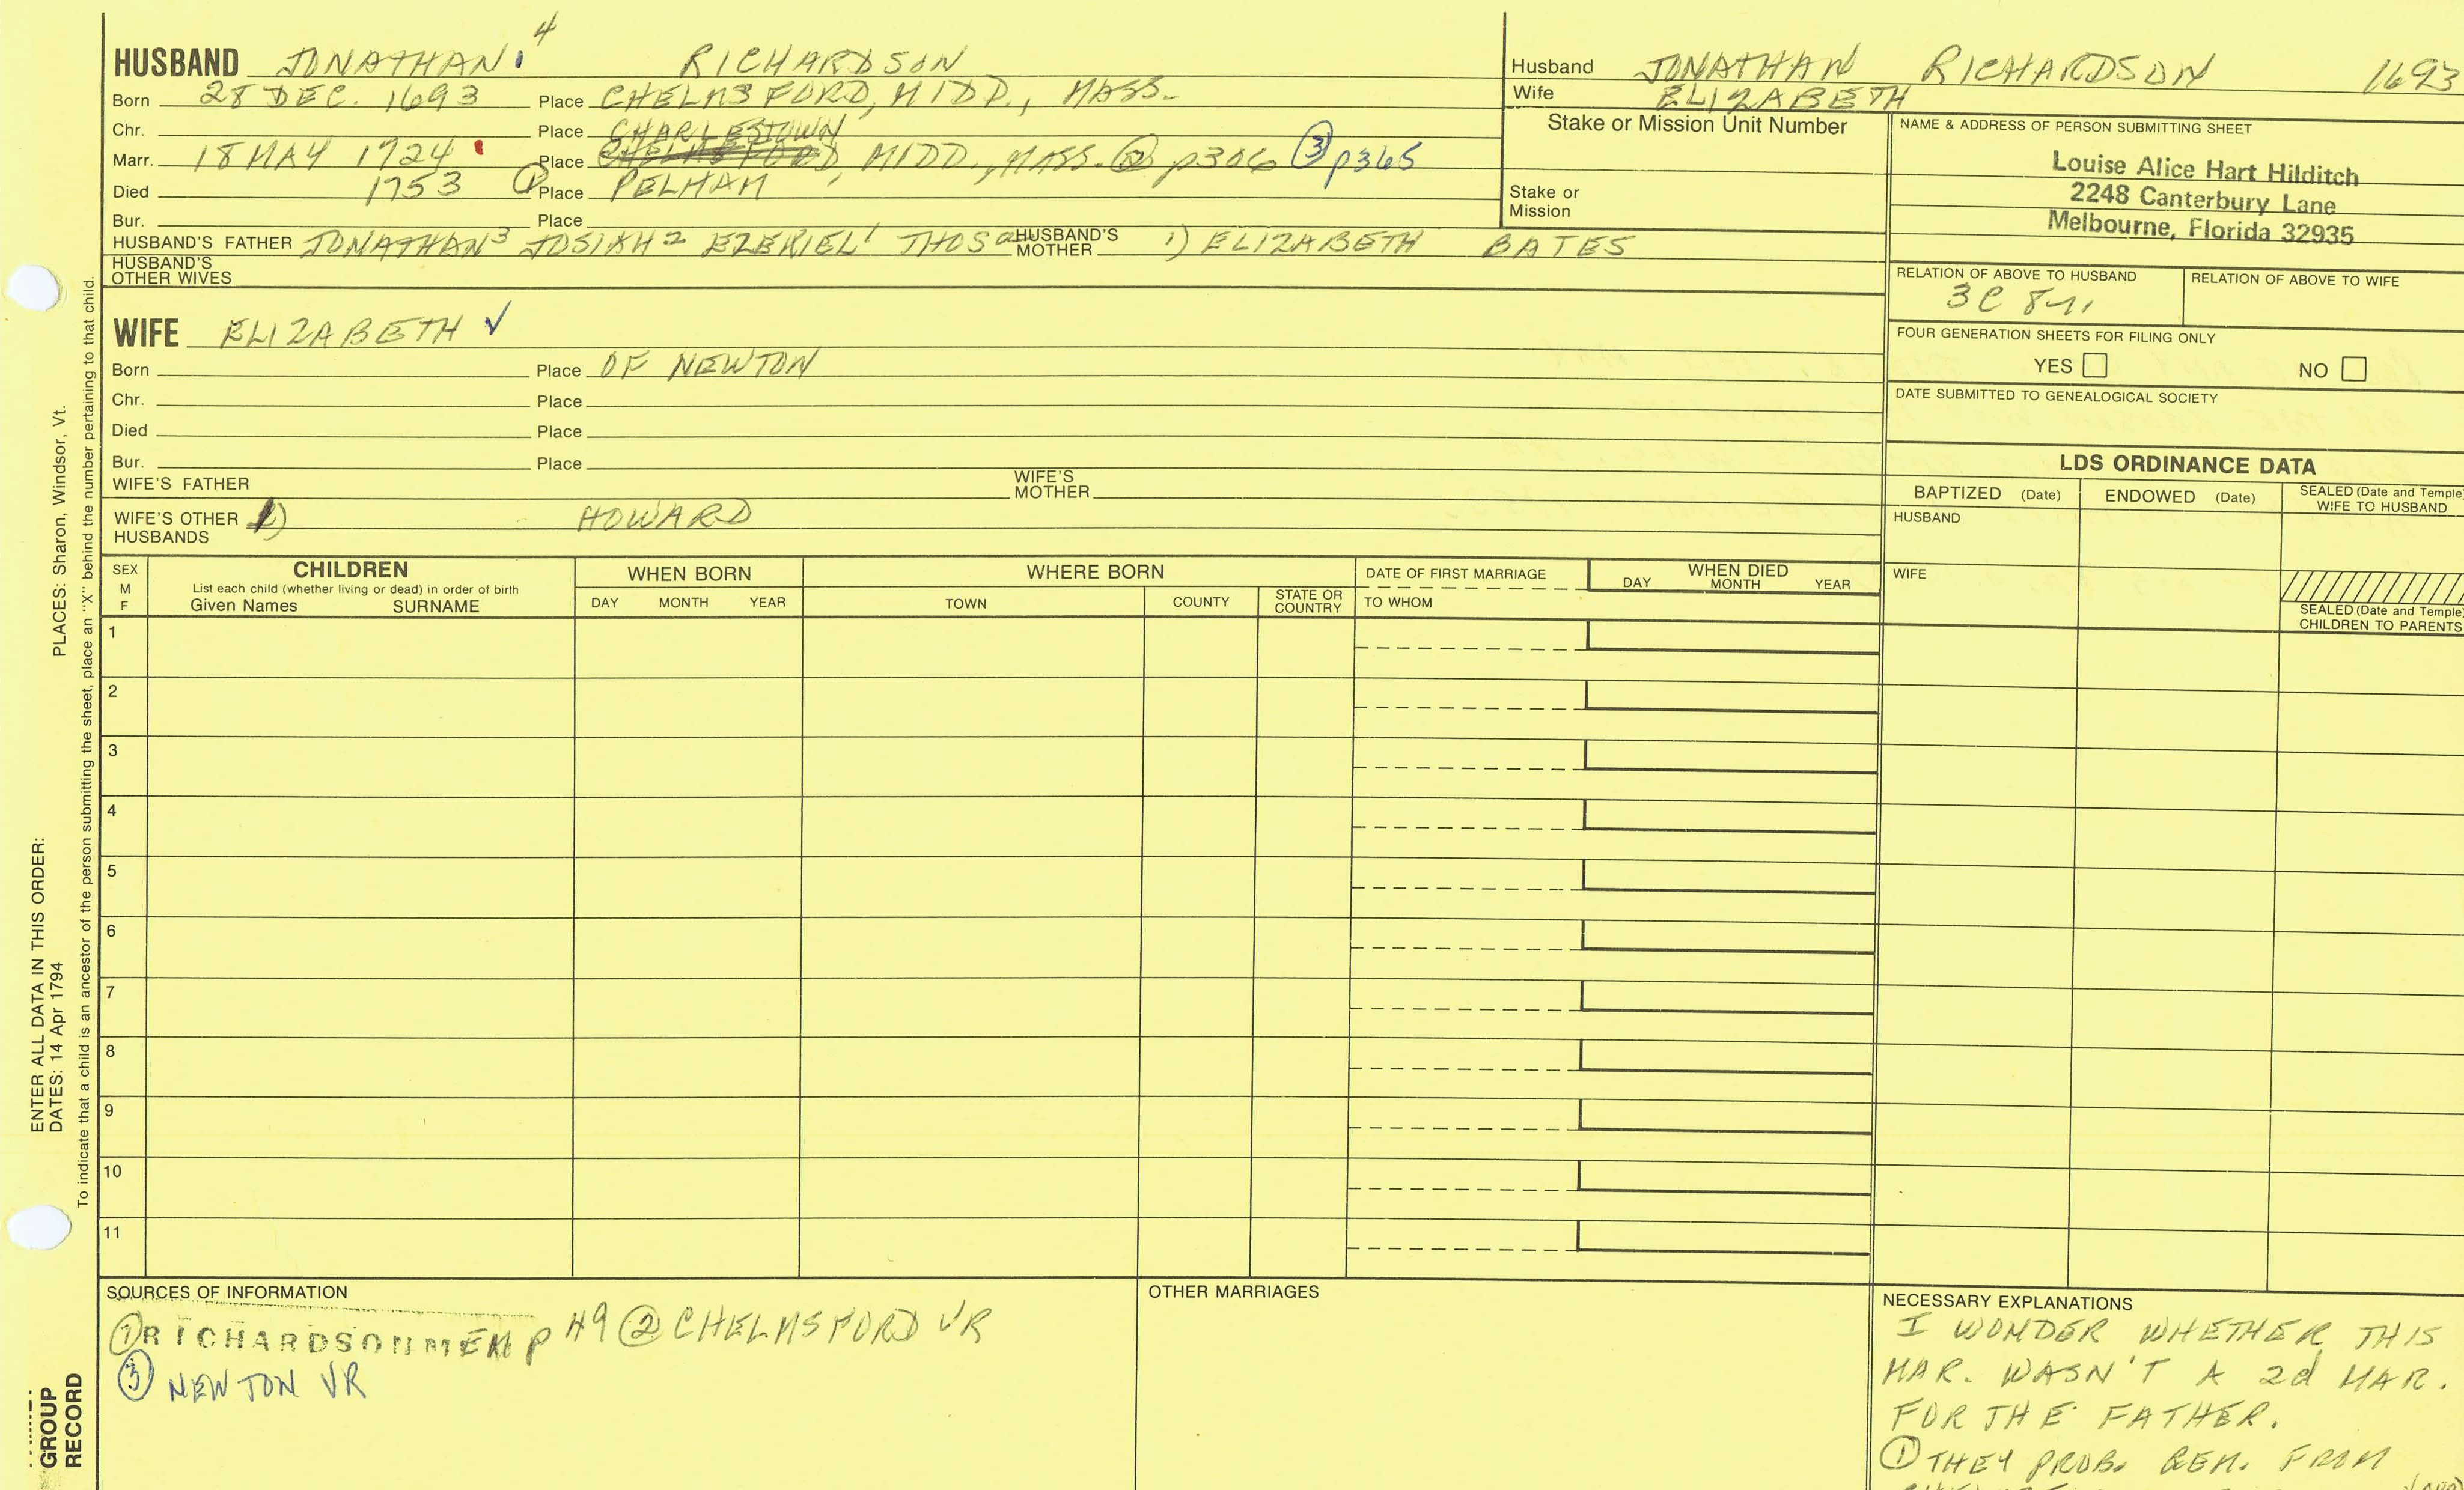 HUSBAND JONATHAN 4 RICHARDSON
Born 28 DEC. 1693 Place CHELMSFORD, MIDD., MASS.
Chr. Place CHARLESTOWN
Marr. 18 MAY 1724 Place CHELMSFORD, MIDD., MASS. ② p306 ③ p365
Died 1753 ① Place PELHAM
Bur. Place
HUSBAND'S FATHER JONATHAN3 JOSIAH2 EZEKIEL1 THOSa HUSBAND'S MOTHER 1) ELIZABETH BATES
HUSBAND'S OTHER WIVES
WIFE ELIZABETH ✓
Born Place OF NEWTON
Chr. Place
Died Place
Bur. Place
WIFE'S FATHER WIFE'S MOTHER
WIFE'S OTHER HUSBANDS HOWARD
Husband JONATHAN RICHARDSON 1693
Wife ELIZABETH
Stake or Mission Unit Number
Stake or Mission
NAME & ADDRESS OF PERSON SUBMITTING SHEET
Louise Alice Hart Hilditch
2248 Canterbury Lane
Melbourne, Florida 32935
RELATION OF ABOVE TO HUSBAND RELATION OF ABOVE TO WIFE
3C 8r,
FOUR GENERATION SHEETS FOR FILING ONLY
YES NO
DATE SUBMITTED TO GENEALOGICAL SOCIETY
LDS ORDINANCE DATA
BAPTIZED (Date) ENDOWED (Date) SEALED (Date and Temple) WIFE TO HUSBAND
HUSBAND
WIFE
SEALED (Date and Temple) CHILDREN TO PARENTS
SEX M F
CHILDREN
List each child (whether living or dead) in order of birth
Given Names SURNAME
WHEN BORN
DAY MONTH YEAR
WHERE BORN
TOWN COUNTY STATE OR COUNTRY
DATE OF FIRST MARRIAGE
TO WHOM
WHEN DIED
DAY MONTH YEAR
1
2
3
4
5
6
7
8
9
10
11
SOURCES OF INFORMATION
① RICHARDSON MEM P 49 ② CHELMSFORD VR
③ NEWTON VR
OTHER MARRIAGES
NECESSARY EXPLANATIONS
I WONDER WHETHER THIS
MAR. WASN'T A 2d MAR.
FOR THE FATHER.
① THEY PROB. REM. FROM
ENTER ALL DATA IN THIS ORDER:
DATES: 14 Apr 1794 PLACES: Sharon, Windsor, Vt.
To indicate that a child is an ancestor of the person submitting the sheet, place an "X" behind the number pertaining to that child.
GROUP
RECORD